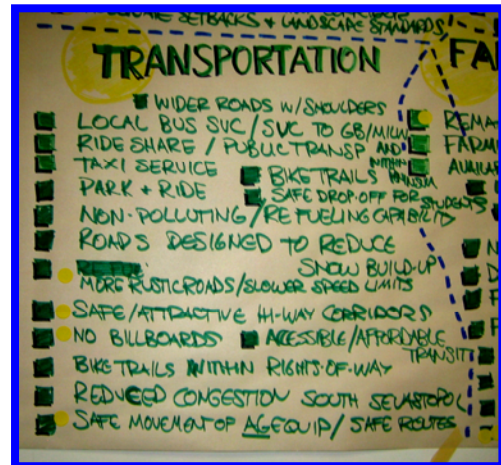 SETBACKS & LANDSCAPE STANDARDS
TRANSPORTATION
FA
WIDER ROADS W/SHOULDERS
LOCAL BUS SVC/SVC TO GB/MILW
RIDE SHARE / PUBLIC TRANSP AND WITHIN
TAXI SERVICE
BIKE TRAILS
PARK + RIDE
SAFE DROP-OFF FOR STUDENTS
NON-POLLUTING/REFUELING CAPABILITY
ROADS DESIGNED TO REDUCE
SNOW BUILD-UP
MORE RUSTIC ROADS/SLOWER SPEED LIMITS
SAFE/ATTRACTIVE HI-WAY CORRIDORS
NO BILLBOARDS
ACCESSIBLE/AFFORDABLE
TRANSIT
BIKE TRAILS WITHIN RIGHTS-OF-WAY
REDUCED CONGESTION SOUTH SEVASTOPOL
SAFE MOVEMENT OF AG EQUIP/ SAFE ROUTES
FARM